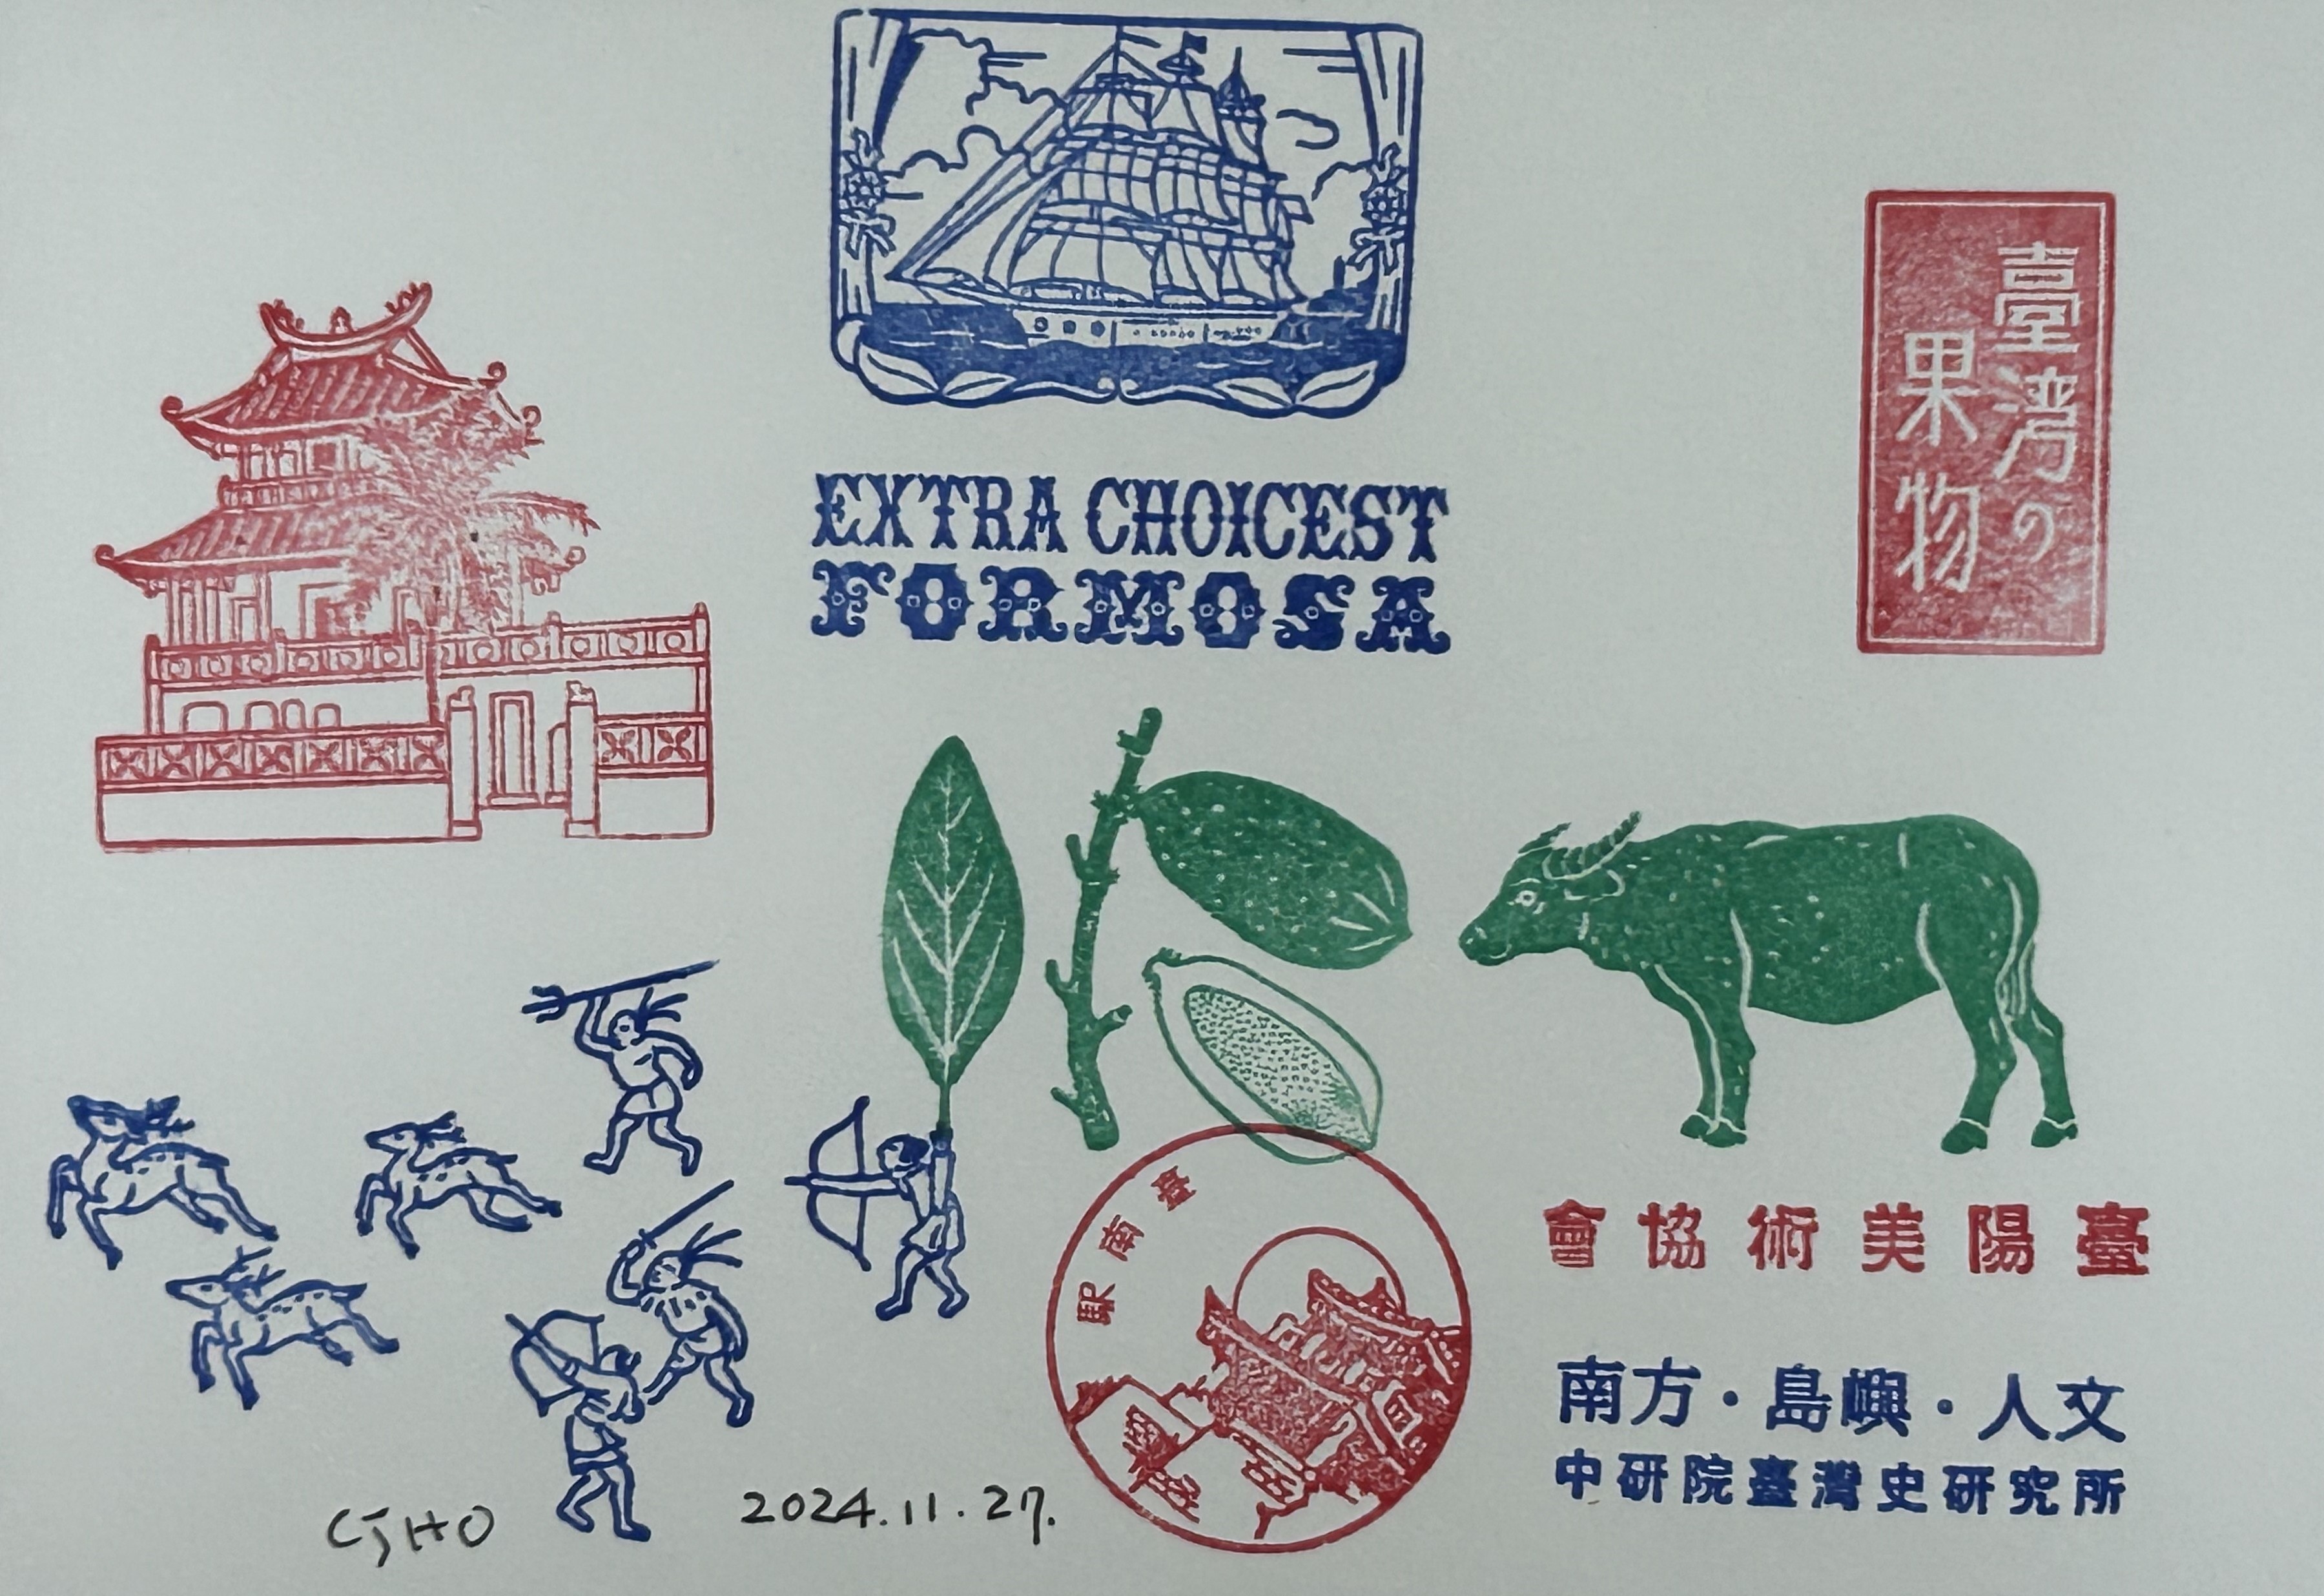 EXTRA CHOICEST
FORMOSA
臺湾の
果物
臺南駅
臺陽美術協會
南方・島嶼・人文
中研院臺灣史研究所
CJHO
2024.11.27.